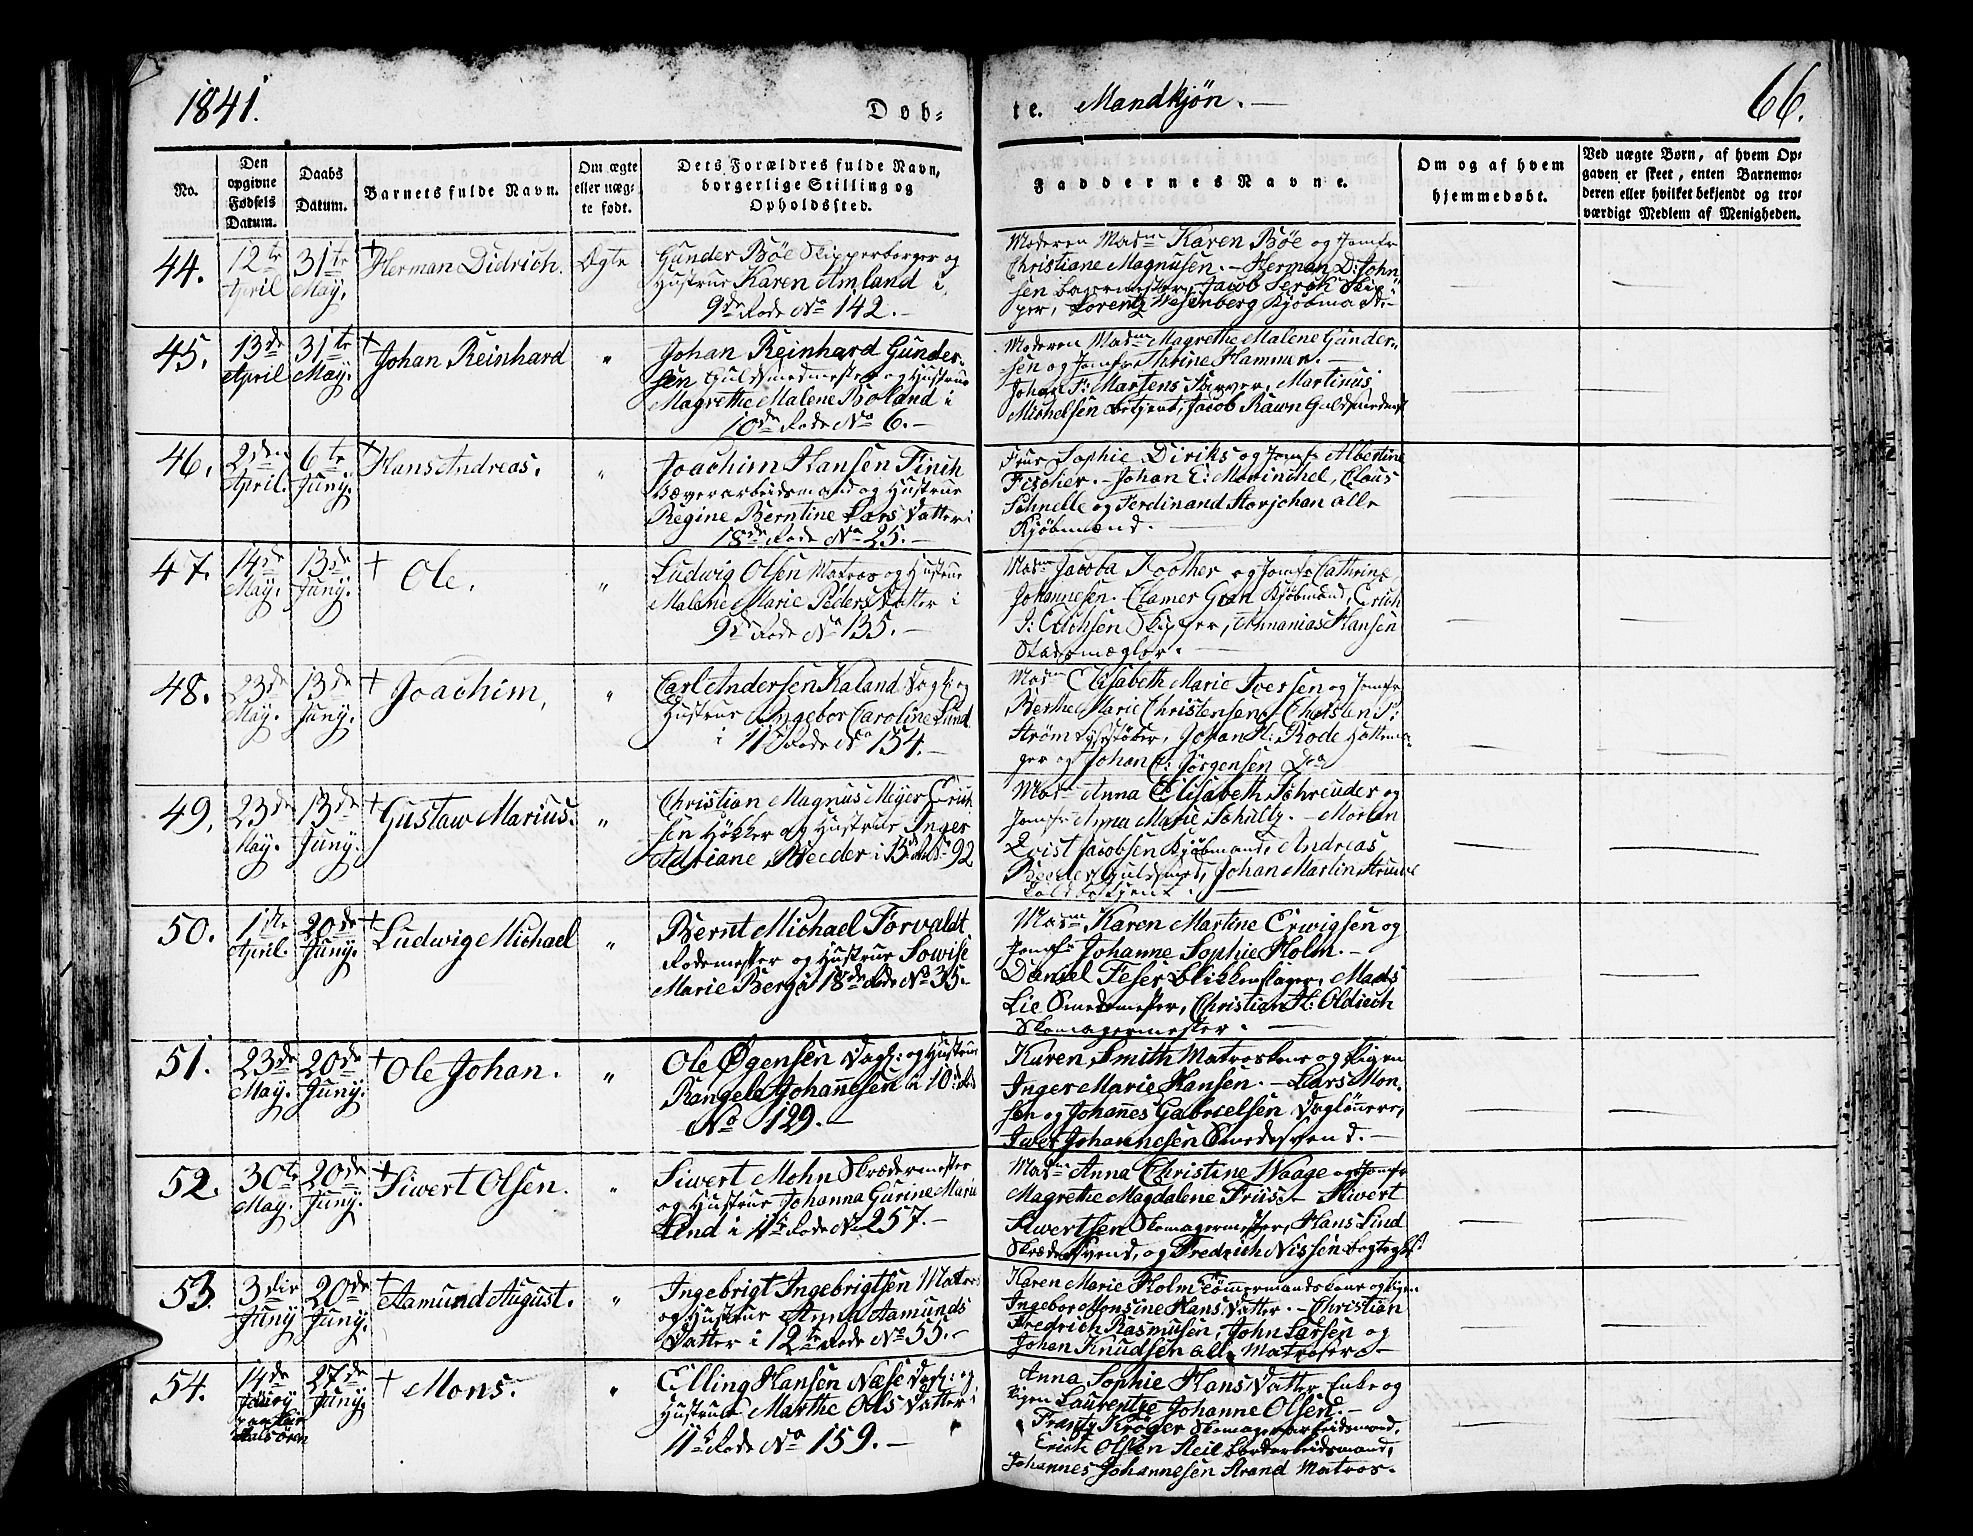 1841.
Døb-
te. Mandkjøn.
66.
No.
Den opgivne Fødsels Datum.
Daabs Datum.
Barnets fulde Navn.
Om ægte eller uæg-
te født.
Dets Forældres fulde Navn,
borgerlige Stilling og
Opholdssted.
Faddernes Navne.
Om og af hvem
hjemmedøbt.
Ved uægte Børn, af hvem Op-
gaven er skeet, enten Barnemo-
deren eller hvilket bekjendt og tro-
værdigt Medlem af Menigheden.
44. 12te April 31te May. + Herman Didrich. Ægte
Gunder Böe Skipperborger og
Hustrue Karen Amland i
9de Rode No 142.
Moderen Madm Karen Böe og Jomfr
Christiane Magnusen. Herman D: John
sen Bagermester, Jacob
per, Lorentz Wesenberg Kjöbmænd
45. 13de April 31te May. + Johan Reinhard "
Johan Reinhard Gunder-
sen Guldsmedmester og Hustrue
Magrethe Malene Boland i
10de Rode No 6.
Moderen Madm Magrethe Malene Gunder-
sen og Jomfr Hammer.
Johan F: Martens Martinus
Michelsen Betjent, Jacob Rawn Guldsmedmst
46. 2den April. 6te Juny. + Hans Andreas. "
Joachim Hansen Finch
Bæverarbeidsmand og Hustrue
Regine Berntine Lars Datter i
18de Rode No 25.
Frue Sophie Diriks og Jomfr Albertine
Fischer. Johan E: Mowinchel, Claus
Schnelle og Ferdinand Storjohan alle
Kjöbmænd.
47. 14de May. 13de Juny. + Ole. "
Ludwig Olsen Matros og Hustrue
Malene Marie Peders Datter i
9de Rode No 135.
Madm Jacoba Koother og Jomfr Cathrine
Johannesen. Clamer Gran Kjöbmand, Erich
J: Erichsen Skipper, Annanias Hansen
Stadsmægler.
48. 23de May. 13de Juny. + Joachim, "
Carl Andersen Kaland Dagk: og
Hustrue Ingebor Caroline Lund
i 11te Rode No 134.
Madm Elisabeth Marie Iversen og Jomfr
Berthe Marie Christensen. Christen P:
Ström Lysestöber, Johan H: Rode Hattema-
ger og Johan C: Jörgensen Do
49. 23de May. 13de Juny. + Gustaw Marius. "
Christian Magnus Meyer Erich
sen Hökker og Hustrue Inger
Adriane Reeder i 15de Rode No 92
Madm Anna Elisabeth Schreuder og
Jomfr Anna Marie Schultz. Morten
Qvist Jacobsen Kjöbmand, Andreas
Guldsmed, Johan Martin
Toldbetjent.
50. 1ste April. 20de Juny. + Ludwig Michael "
Bernt Michael Forvaldt
Rodemester og Hustrue Lowise
Marie Berg i 18de Rode No 35.
Madm Karen Martine Erwigsen og
Jomfr Johanne Sophie Holm.
Daniel Feser Blikkenslager, Mads
Lie Smedemester, Christian H: Oldiech
Skomagermester.
51. 23de May. 20de Juny. + Ole Johan. "
Ole Ögensen Dagk: og Hustrue
Rangele Johannesen i 10de Rode
No 129.
Karen Smith Matroskone og Pigen
Inger Marie Hansen. Lars Mon-
sen og Johannes Gabrielsen Daglönere,
Iwer Johannesen Smedesvend.
52. 30te May. 20de Juny. + Siwert Olsen. "
Siwert Mohn Skrædermester
og Hustrue Johanna Gurine Maria
Lind i 11te Rode No 257.
Madm Anna Christine Waage og Jomfr
Magrethe Magdalene Friis. Siwert
Siwertsen Skomagermester, Hans Lind
Skrædersvend, og Fredrich Nissen
53. 3die Juny 20de Juny. + Aamund August. "
Ingebrigt Ingebrigtsen Matros
og Hustrue Anna Aamunds
Datter i 12te Rode No 55.
Karen Marie Holm Tömmermandskone og Pigen
Ingebor Monsine Hans Datter. Christian
Fredrich Rasmusen, John Larsen og
Johan Knudsen alle Matroser
54. 14de 27de Juny. + Mons. "
Elling Hansen Næse Dagk: og
Hustrue Marthe Ols Datter i
11te Rode No 159.
Anna Sophie Hans Datter Enke og
Pigen Laurentze Johanne Olsen.
Frantz Kröger Skomagerarbeidsmand,
Erich Olsen
Johannes Johannesen Strand Matros.